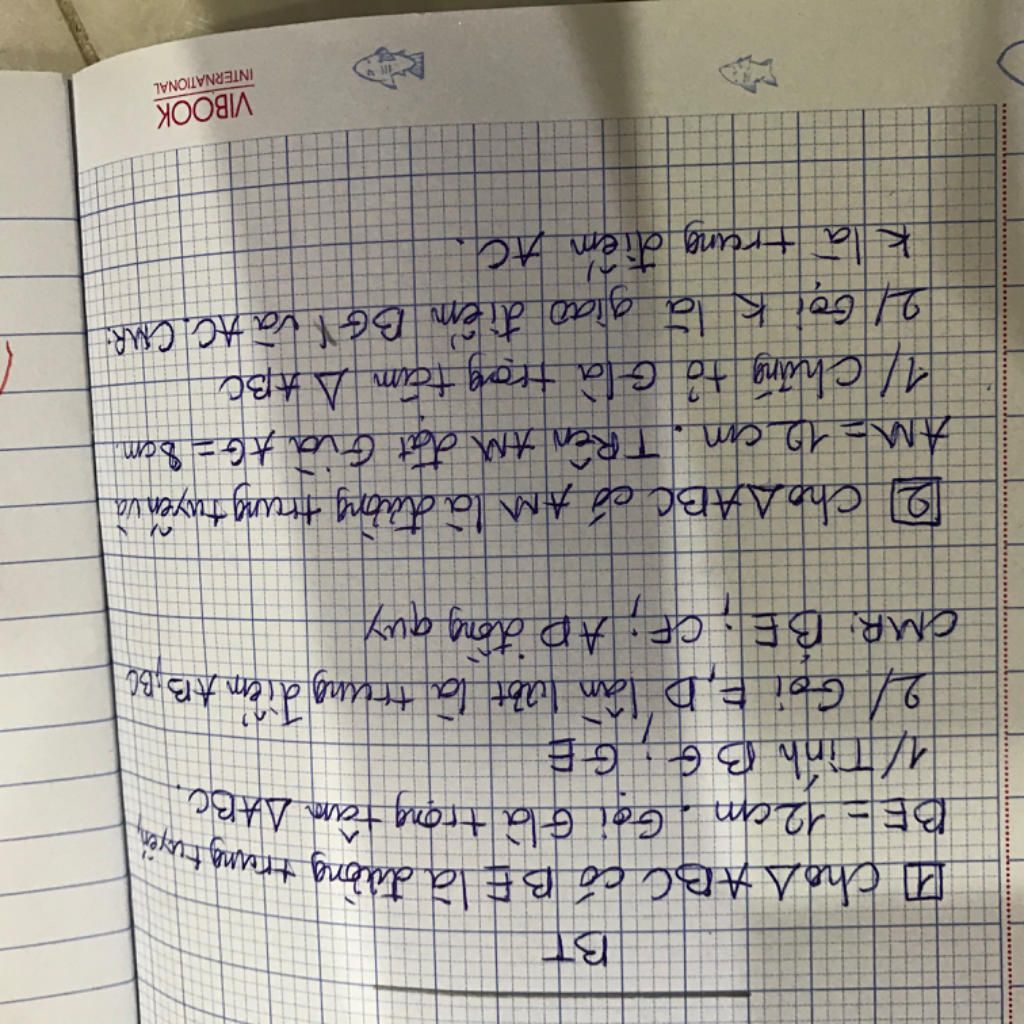 BT
1 Cho Δ ABC có BE là đường trung tuyến,
BE = 12 cm. Gọi G là trọng tâm Δ ABC.
1/ Tính BG; GE
2/ Gọi F, D lần lượt là trung điểm AB, BC
CMR: BE; CF; AD đồng quy
2 Cho Δ ABC có AM là đường trung tuyến và
AM = 12 cm. Trên AM đặt G và AG = 8 cm.
1/ Chứng tỏ G là trọng tâm Δ ABC
2/ Gọi K là giao điểm BG và AC. CMR:
K là trung điểm AC.
VIBOOK
INTERNATIONAL